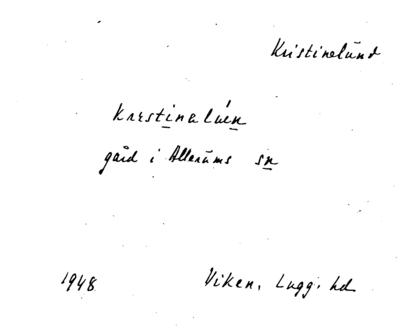 Kristinelund
krɛstinalúen
gård i Allerums sn
1948 Viken, Lugg. hd